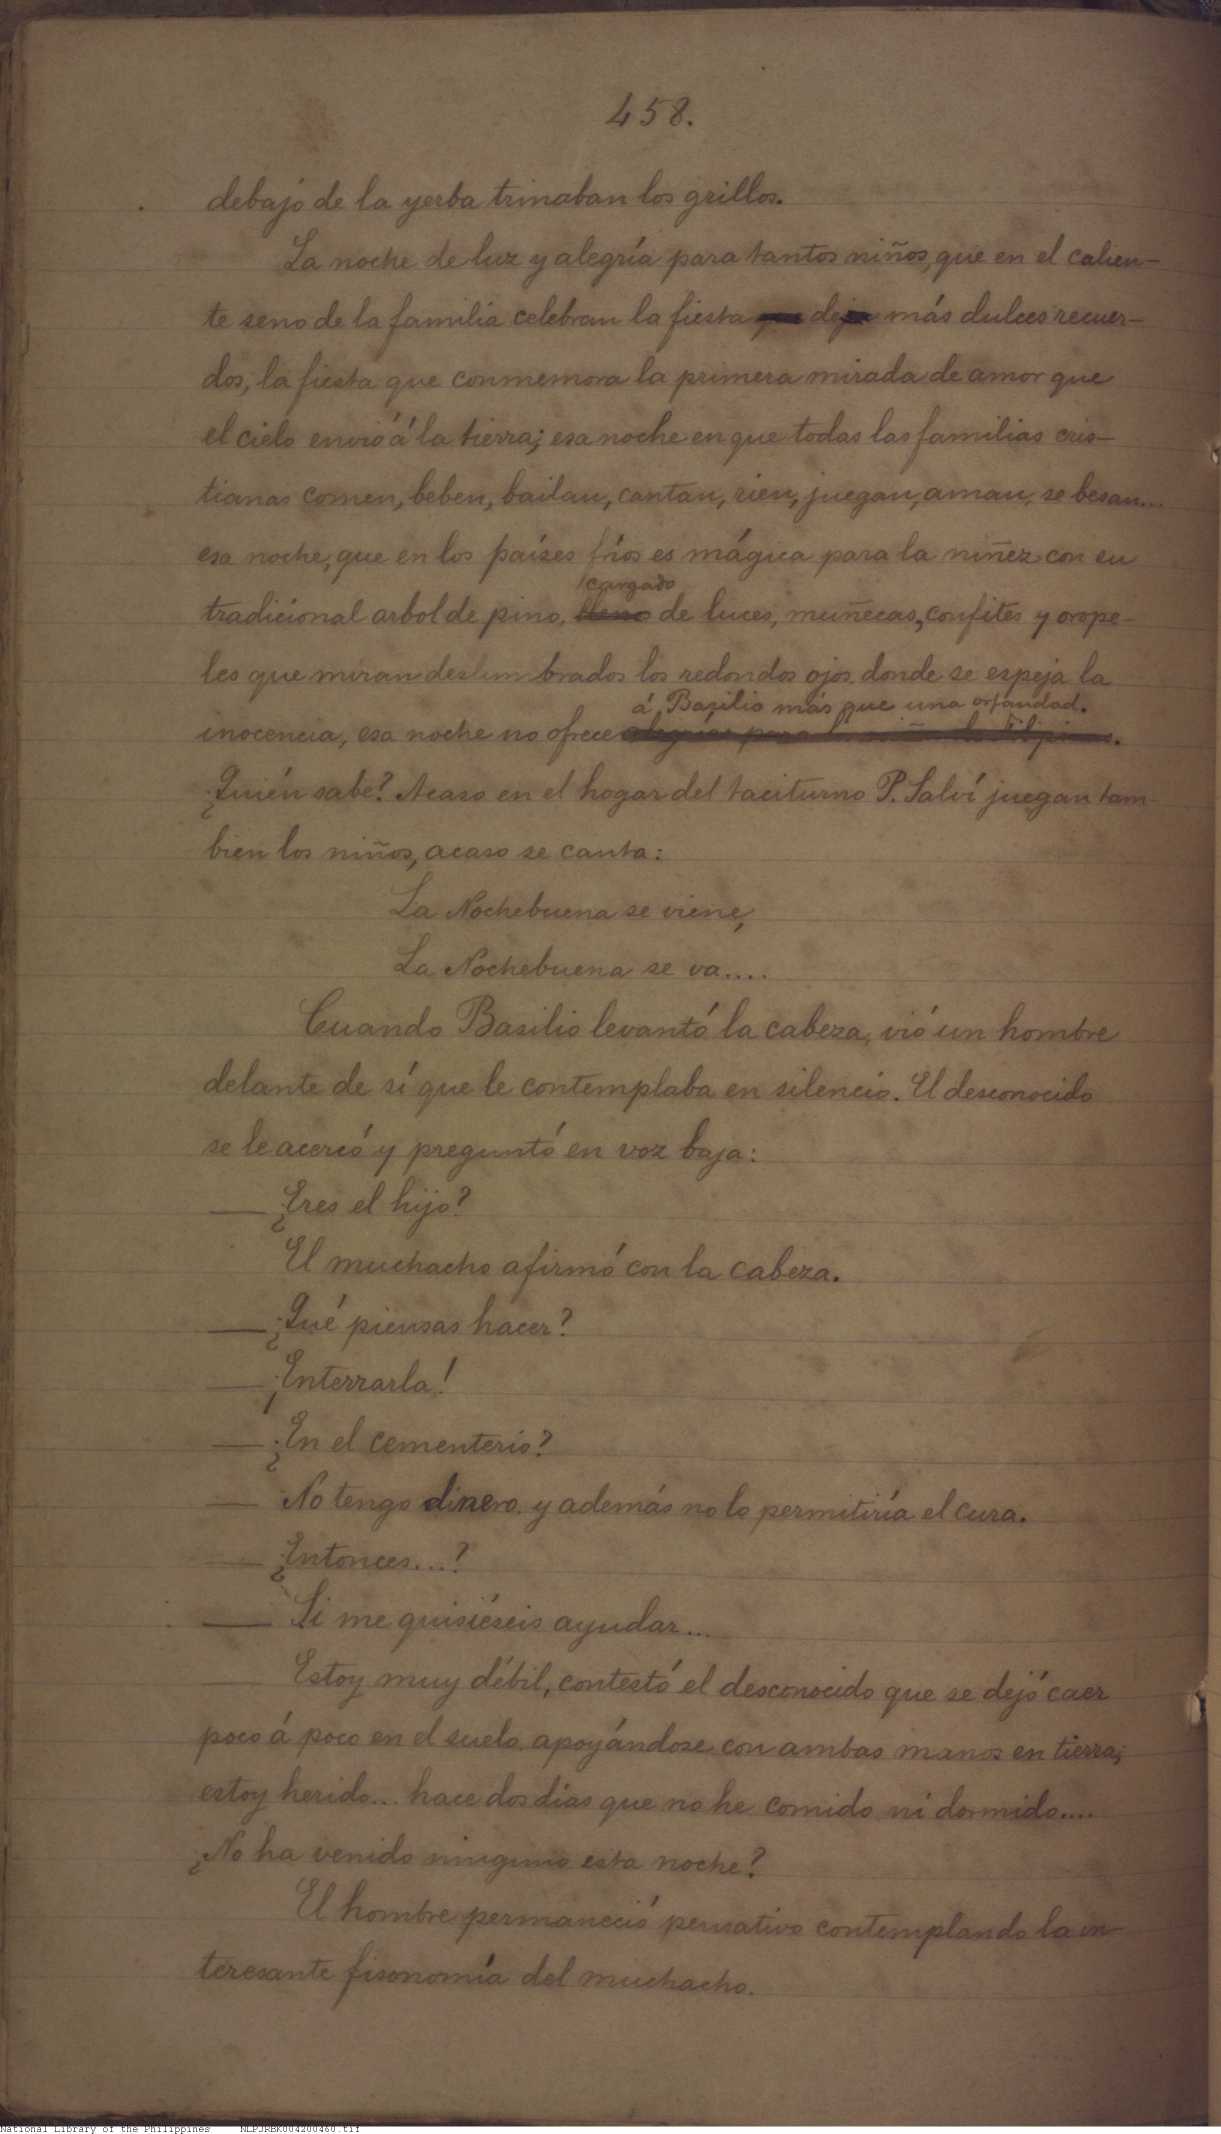 458.
debajo de la yerba trinaban los grillos.
La noche de luz y alegría para tantos niños, que en el calien-
te seno de la familia celebran la fiesta de más dulces recuer-
dos, la fiesta que conmemora la primera mirada de amor que
el cielo envió á la tierra; esa noche en que todas las familias cris-
tianas comen, beben, bailan, cantan, rien, juegan, aman, se besan...
esa noche, que en los países fríos es mágica para la niñez con su
cargado
tradicional arbol de pino, lleno de luces, muñecas, confites y orope-
les que miran deslumbrados los redondos ojos donde se espeja la
á Basilio más que una orfandad.
inocencia, esa noche no ofrece
¿Quién sabe? Acaso en el hogar del taciturno P. Salví juegan tam-
bien los niños, acaso se canta:
La Nochebuena se viene,
La Nochebuena se va....
Cuando Basilio levantó la cabeza, vió un hombre
delante de sí que le contemplaba en silencio. El desconocido
se le acercó y preguntó en voz baja:
— ¿Eres el hijo?
El muchacho afirmó con la cabeza.
— ¿Qué piensas hacer?
— ¡Enterrarla!
— ¿En el cementerio?
— No tengo dinero y además no lo permitiría el cura.
— ¿Entonces...?
— Si me quisiéseis ayudar...
— Estoy muy débil, contestó el desconocido que se dejó caer
poco á poco en el suelo apoyándose con ambas manos en tierra;
estoy herido... hace dos dias que no he comido ni dormido....
¿No ha venido ninguno esta noche?
El hombre permaneció pensativo contemplando la in-
teresante fisonomía del muchacho.
National Library of the Philippines NLPJRBK004200460.tif